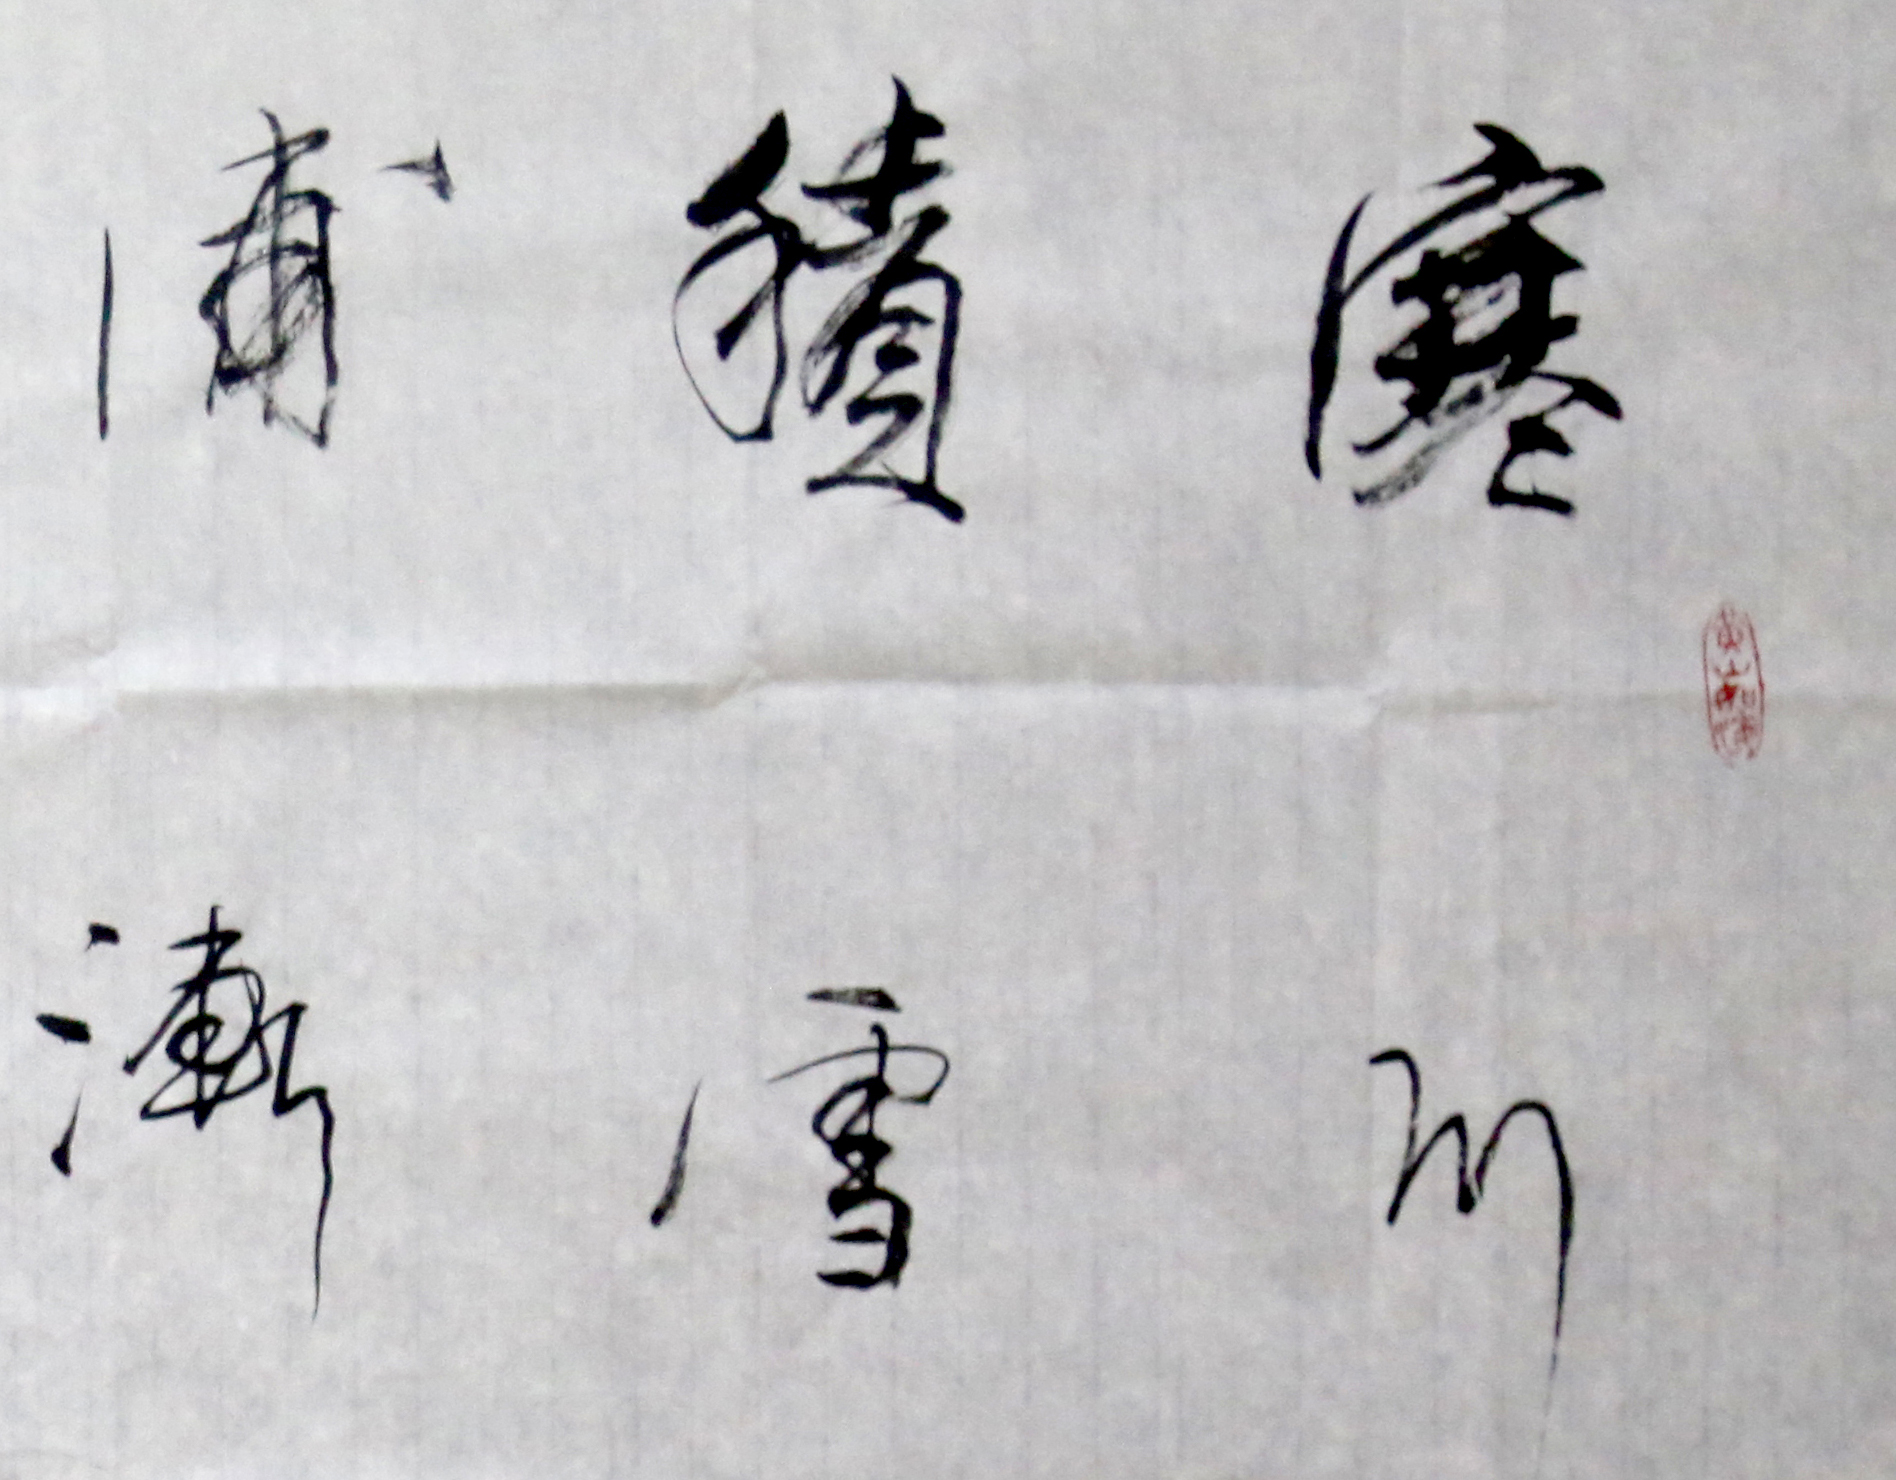 寒川
積雪
浦漸